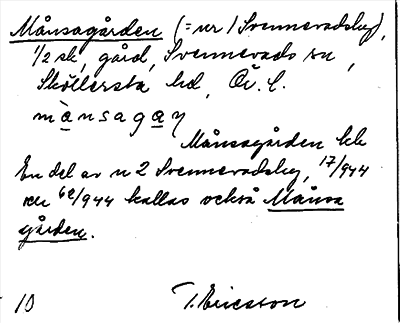 Månsagården (= nr 1 Svennevadsby),
1/2 sk, gård, Svennevads sn,
Sköllersta hd, Ör. l.
mànsagaη
Månsagården kk
En del av n 2 Svennevadsby, 17/944
62/944 kallas också Månsa
gården.
10 T. Ericsson